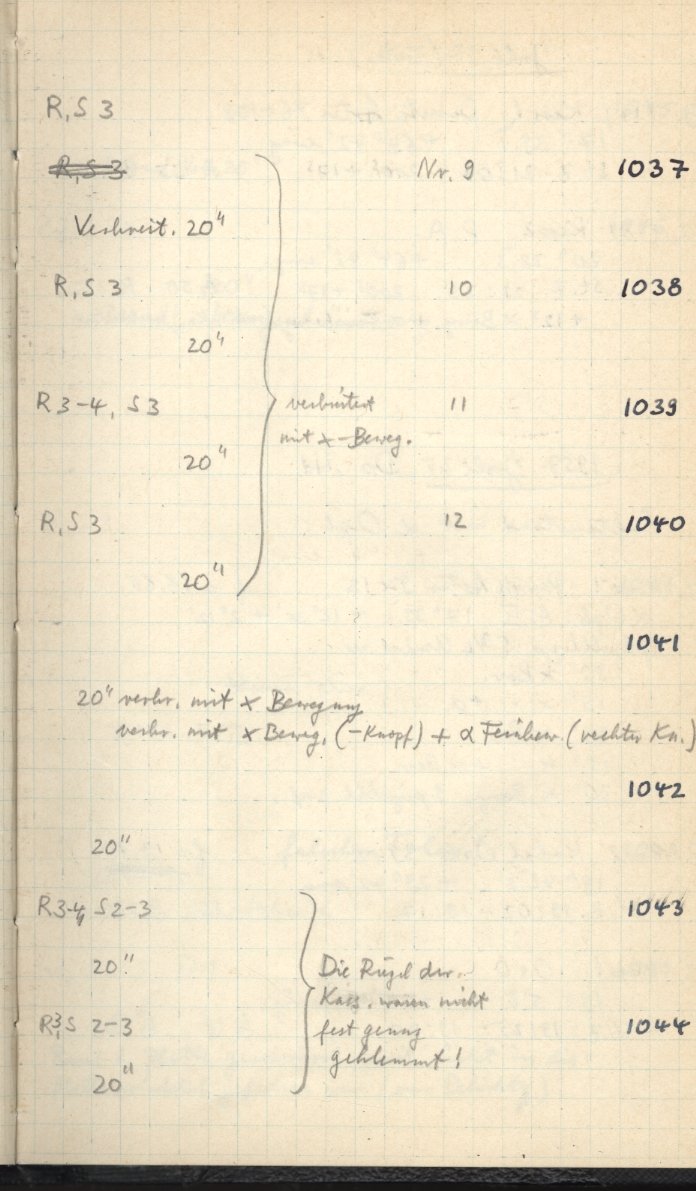 R, S 3
R, S 3 Nr. 9 1037
Verbreit. 20"
R, S 3 10 1038
20"
R 3-4, S 3 verbreitert 11 1039
mit x-Beweg.
20"
R, S 3 12 1040
20"
1041
20" verbr. mit x Bewegung
verbr. mit x Beweg. (-Knopf) + α Feinbew. (rechter Kn.)
1042
20"
R 3-4, S 2-3 1043
20" Die Rügel der
Kass. waren nicht
R 3, S 2-3 fest genug 1044
geklemmt!
20"